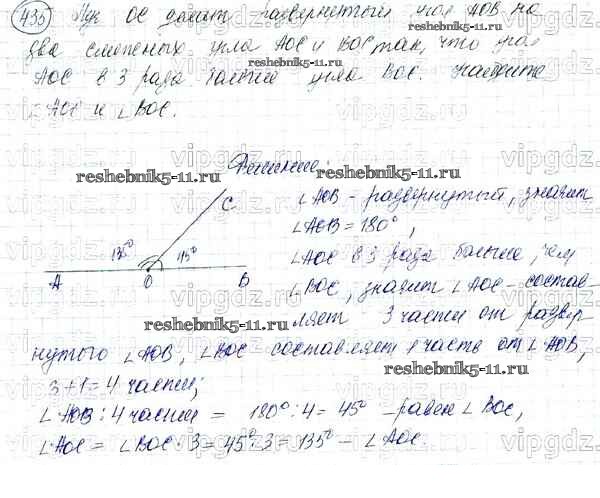 435 Луч ОС делит развернутый угол АОВ на
два смежных угла АОС и ВОС так, что угол
АОС в 3 раза больше угла ВОС. Найдите
∠АОС и ∠ВОС.
reshebnik5-11.ru
Решение:
reshebnik5-11.ru
∠АОВ - развернутый, значит
∠АОВ = 180°,
∠АОС в 3 раза больше, чем
∠ВОС, значит ∠АОС - состав-
ляет 3 части от развер-
С
135° 45°
А О В
reshebnik5-11.ru
нутого ∠АОВ, ∠ВОС составляет 1 часть от ∠АОВ,
3+1=4 части;
∠АОВ : 4 части = 180° : 4 = 45° - равен ∠ВОС,
∠АОС = ∠ВОС · 3 = 45° · 3 = 135° - ∠АОС.
reshebnik5-11.ru
vipgdz.ru